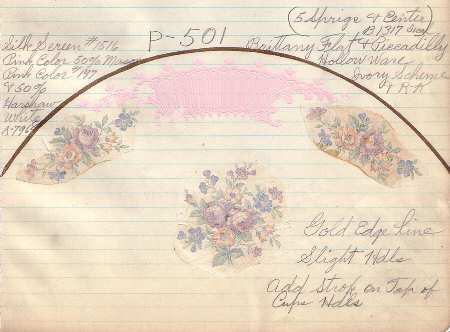 (5 Sprigs & Center)
P-501
B1317 Size)
Silk Screen #1516
Pink Color 50% Mason
Pink Color #197
& 50%
Harshaw
White
Brittany Flat & Piccadilly
Hollow Ware
Ivory Scheme
& R.K
Gold Edge line
Slight Hdls
Add Strop on Top of
Cups Hdls